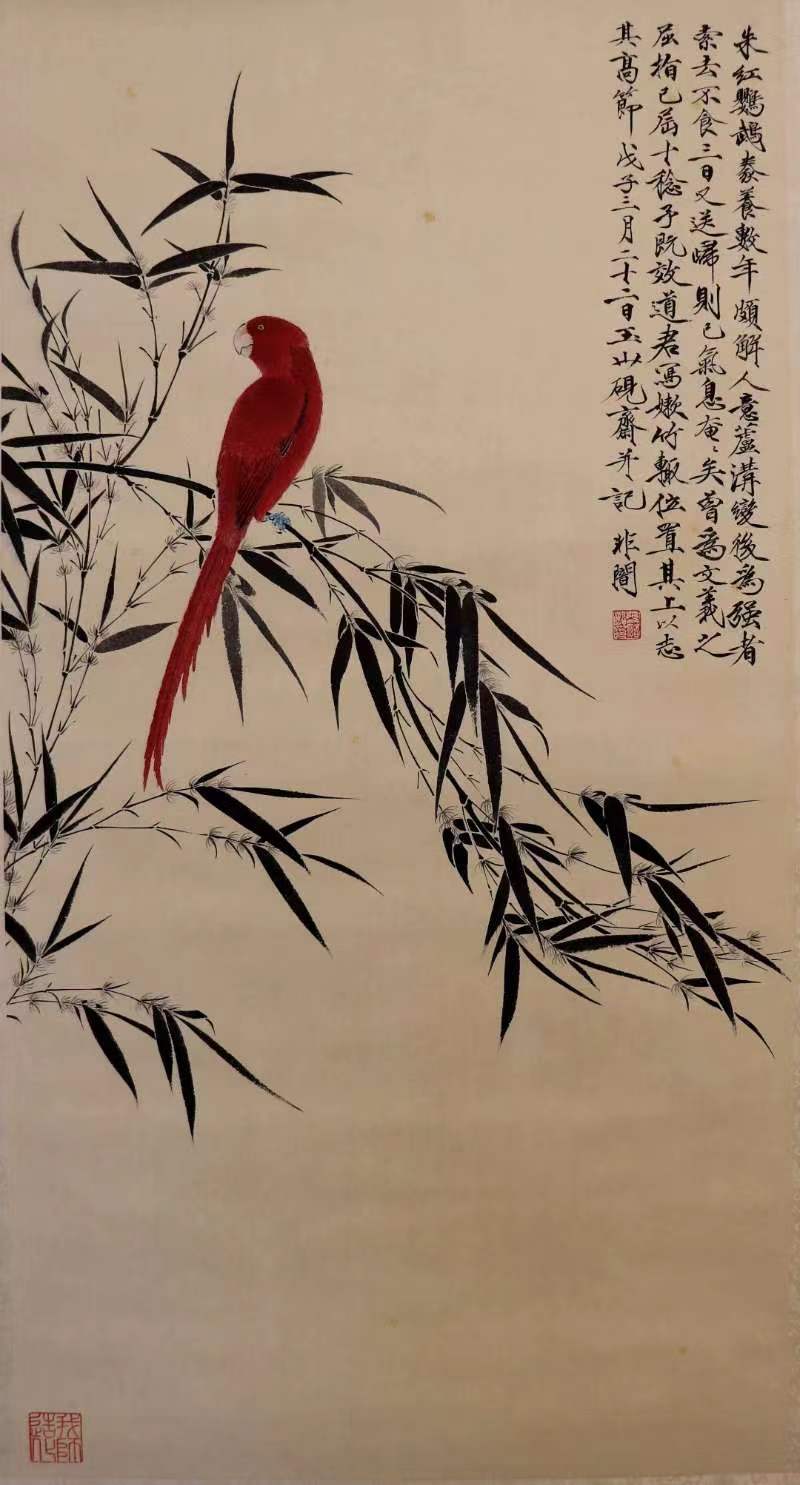 朱紅鸚鵡豢養數年頗解人意蘆溝變後為強者
索去不食三日又送歸則已氣息奄〻矣曾為文義之
屈指已屆十稔予既效道君寫嫩竹輒位置其上以志
其高節戊子三月二十二日玉山硯齋并記 非闇
我師造化